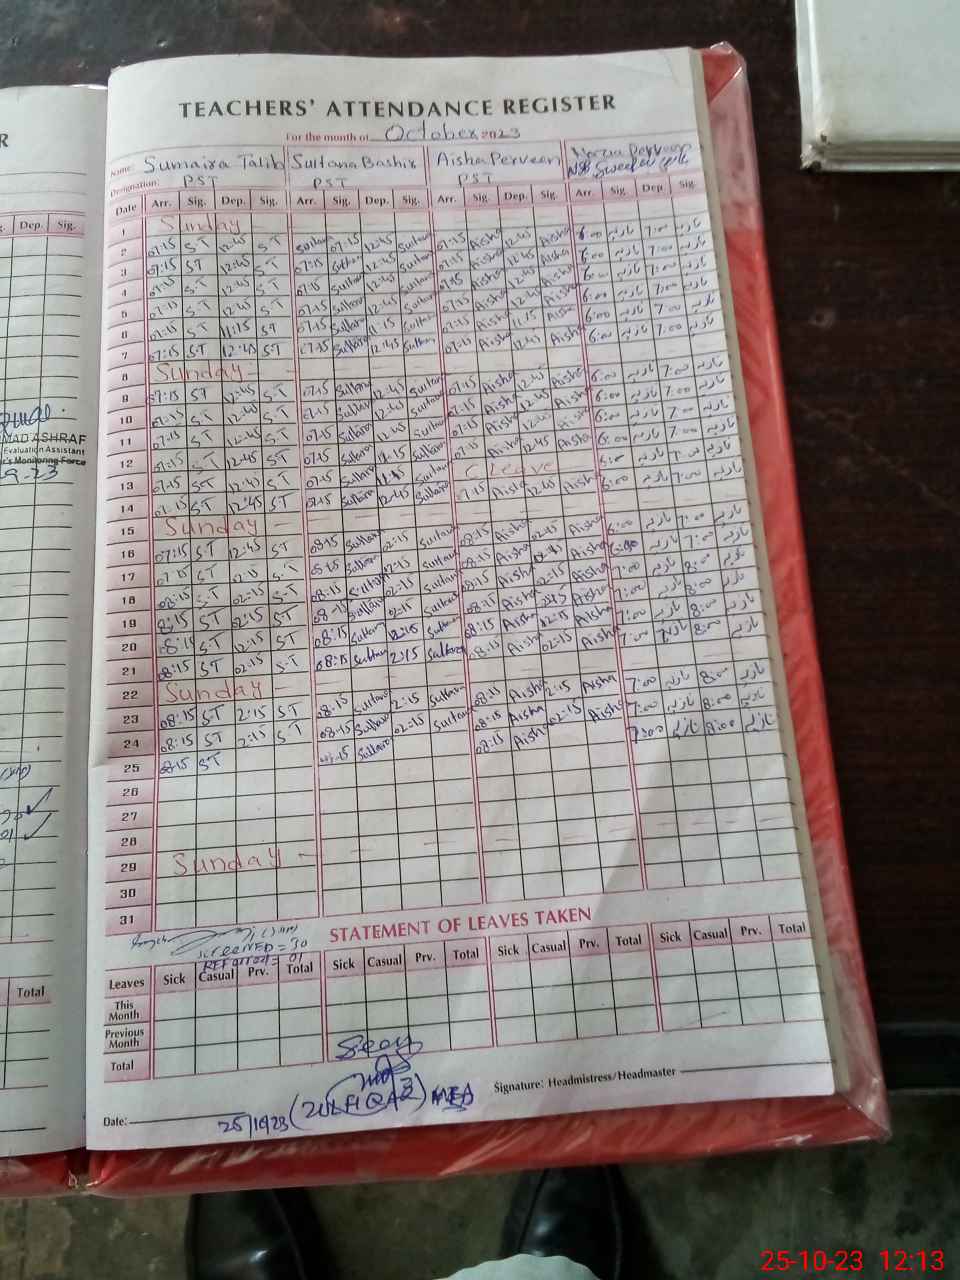 R
TEACHERS' ATTENDANCE REGISTER
For the month of October 2023
Name: Sumaira Talib Sultana Bashir Aisha Perveen Perveen
Designation: PST PST PST
Dep. Sig. Date Arr. Sig. Dep. Sig. Arr. Sig. Dep. Sig. Arr. Sig. Dep. Sig. Arr. Sig. Dep. Sig.
1 Sunday
2 07:15 ST 12:45 ST Sultana 07:15 12:45 Sultana 07:15 Aisha 12:45 Aisha 6:00 نازیہ 7:00 نازیہ
3 07:15 ST 12:45 ST 07:15 Sultana 12:45 Sultana 07:15 Aisha 12:45 Aisha 6:00 نازیہ 7:00 نازیہ
4 07:15 ST 12:45 ST 07:15 Sultana 12:45 Sultana 07:15 Aisha 12:45 Aisha 6:00 نازیہ 7:00 نازیہ
5 07:15 ST 12:45 ST 07:15 Sultana 12:45 Sultana 07:15 Aisha 12:45 Aisha 6:00 نازیہ 7:00 نازیہ
6 07:15 ST 11:15 ST 07:15 Sultana 11:15 Sultana 07:15 Aisha 11:15 Aisha 6:00 نازیہ 7:00 نازیہ
7 07:15 ST 12:45 ST 07:15 Sultana 12:45 Sultana 07:15 Aisha 12:45 Aisha 6:00 نازیہ 7:00 نازیہ
8 Sunday
9 07:15 ST 12:45 ST 07:15 Sultana 12:45 Sultana 07:15 Aisha 12:45 Aisha 6:00 نازیہ 7:00 نازیہ
10 07:15 ST 12:45 ST 07:15 Sultana 12:45 Sultana 07:15 Aisha 12:45 Aisha 6:00 نازیہ 7:00 نازیہ
11 07:15 ST 12:45 ST 07:15 Sultana 12:45 Sultana 07:15 Aisha 12:45 Aisha 6:00 نازیہ 7:00 نازیہ
12 07:15 ST 12:45 ST 07:15 Sultana Sultana 07:15 Aisha 12:45 Aisha 6:00 نازیہ 7:00 نازیہ
13 07:15 ST 12:45 ST 07:15 Sultana Sultana C leave 6:00 نازیہ 7:00 نازیہ
14 07:15 ST 12:45 ST 07:15 Sultana 12:45 Sultana 07:15 Aisha 12:45 Aisha 6:00 نازیہ 7:00 نازیہ
15 Sunday
16 07:15 ST 12:45 ST 08:15 Sultana 02:15 Sultana 08:15 Aisha 02:15 Aisha 6:00 نازیہ 7:00 نازیہ
17 07:15 ST 02:15 ST 08:15 Sultana 02:15 Sultana 08:15 Aisha Aisha نازیہ 7:00 نازیہ
18 08:15 ST 02:15 ST 08:15 Sultana 02:15 Sultana 08:15 Aisha 02:15 Aisha 7:00 نازیہ 8:00 نازیہ
19 8:15 ST 02:15 ST 08:15 Sultana 02:15 Sultana 08:15 Aisha Aisha 7:00 نازیہ 8:00 نازیہ
20 08:15 ST 12:15 ST 08:15 Sultana 12:15 Sultana 08:15 Aisha 12:15 Aisha 7:00 نازیہ 8:00 نازیہ
21 08:15 ST 02:15 ST 08:15 Sultana 2:15 Sultana 08:15 Aisha 02:15 Aisha 7:00 نازیہ 8:00 نازیہ
22 Sunday
23 08:15 ST 2:15 ST 08:15 Sultana 2:15 Sultana 08:15 Aisha 2:15 Aisha 7:00 نازیہ 8:00 نازیہ
24 08:15 ST 2:15 ST 08:15 Sultana 02:15 Sultana 08:15 Aisha 02:15 Aisha 7:00 نازیہ 8:00 نازیہ
25 08:15 ST Sultana 08:15 Aisha 7:00 نازیہ 8:00 نازیہ
26
27
28
29 Sunday
30
31
MAD ASHRAF
Evaluation Assistant
r's Monitoring Force
9-23
SCREENED = 30
REFERRED = 01
STATEMENT OF LEAVES TAKEN
Total Leaves Sick Casual Prv. Total Sick Casual Prv. Total Sick Casual Prv. Total Sick Casual Prv. Total
This Month
Previous Month
Total
Seen
(ZULFIQAR) MEA
Signature: Headmistress/Headmaster
Date:
25/10/23
25-10-23 12:13